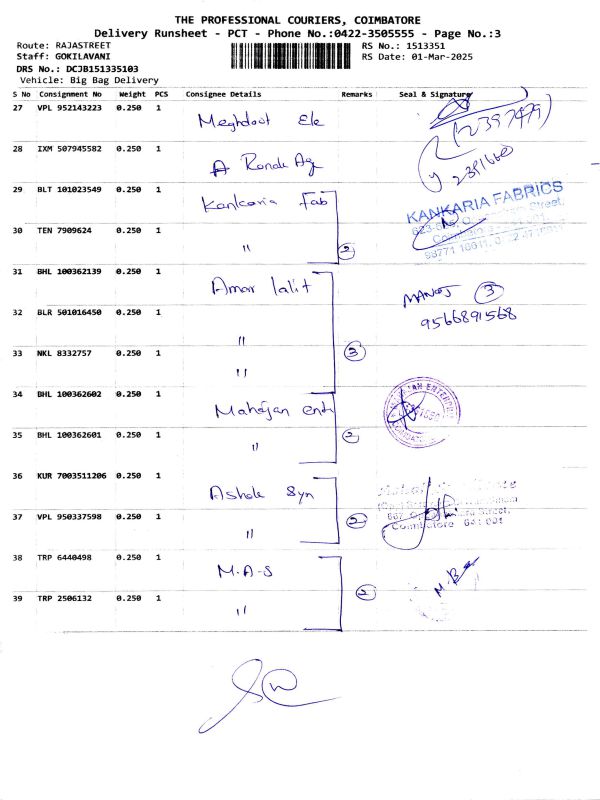 THE PROFESSIONAL COURIERS, COIMBATORE
Delivery Runsheet - PCT - Phone No.:0422-3505555 - Page No.:3
Route: RAJASTREET RS No.: 1513351
Staff: GOKILAVANI RS Date: 01-Mar-2025
DRS No.: DCJB151335103
Vehicle: Big Bag Delivery
S No Consignment No Weight PCS Consignee Details Remarks Seal & Signature
27 VPL 952143223 0.250 1 Meghdoot Ele
28 IXM 507945582 0.250 1 A Ronde Ag
29 BLT 101023549 0.250 1 Kankaria Fab KANKARIA FABRICS
30 TEN 7909624 0.250 1 " 2
31 BHL 100362139 0.250 1 Amar lalit MANOJ 3
9566891568
32 BLR 501016450 0.250 1 "
33 NKL 8332757 0.250 1 " 3
34 BHL 100362602 0.250 1 Mahajan ent
35 BHL 100362601 0.250 1 " 2
36 KUR 7003511206 0.250 1 Ashok Syn
37 VPL 950337598 0.250 1 " 2
Coimbatore 641 001
38 TRP 6440498 0.250 1 M.A-S
39 TRP 2506132 0.250 1 " 2